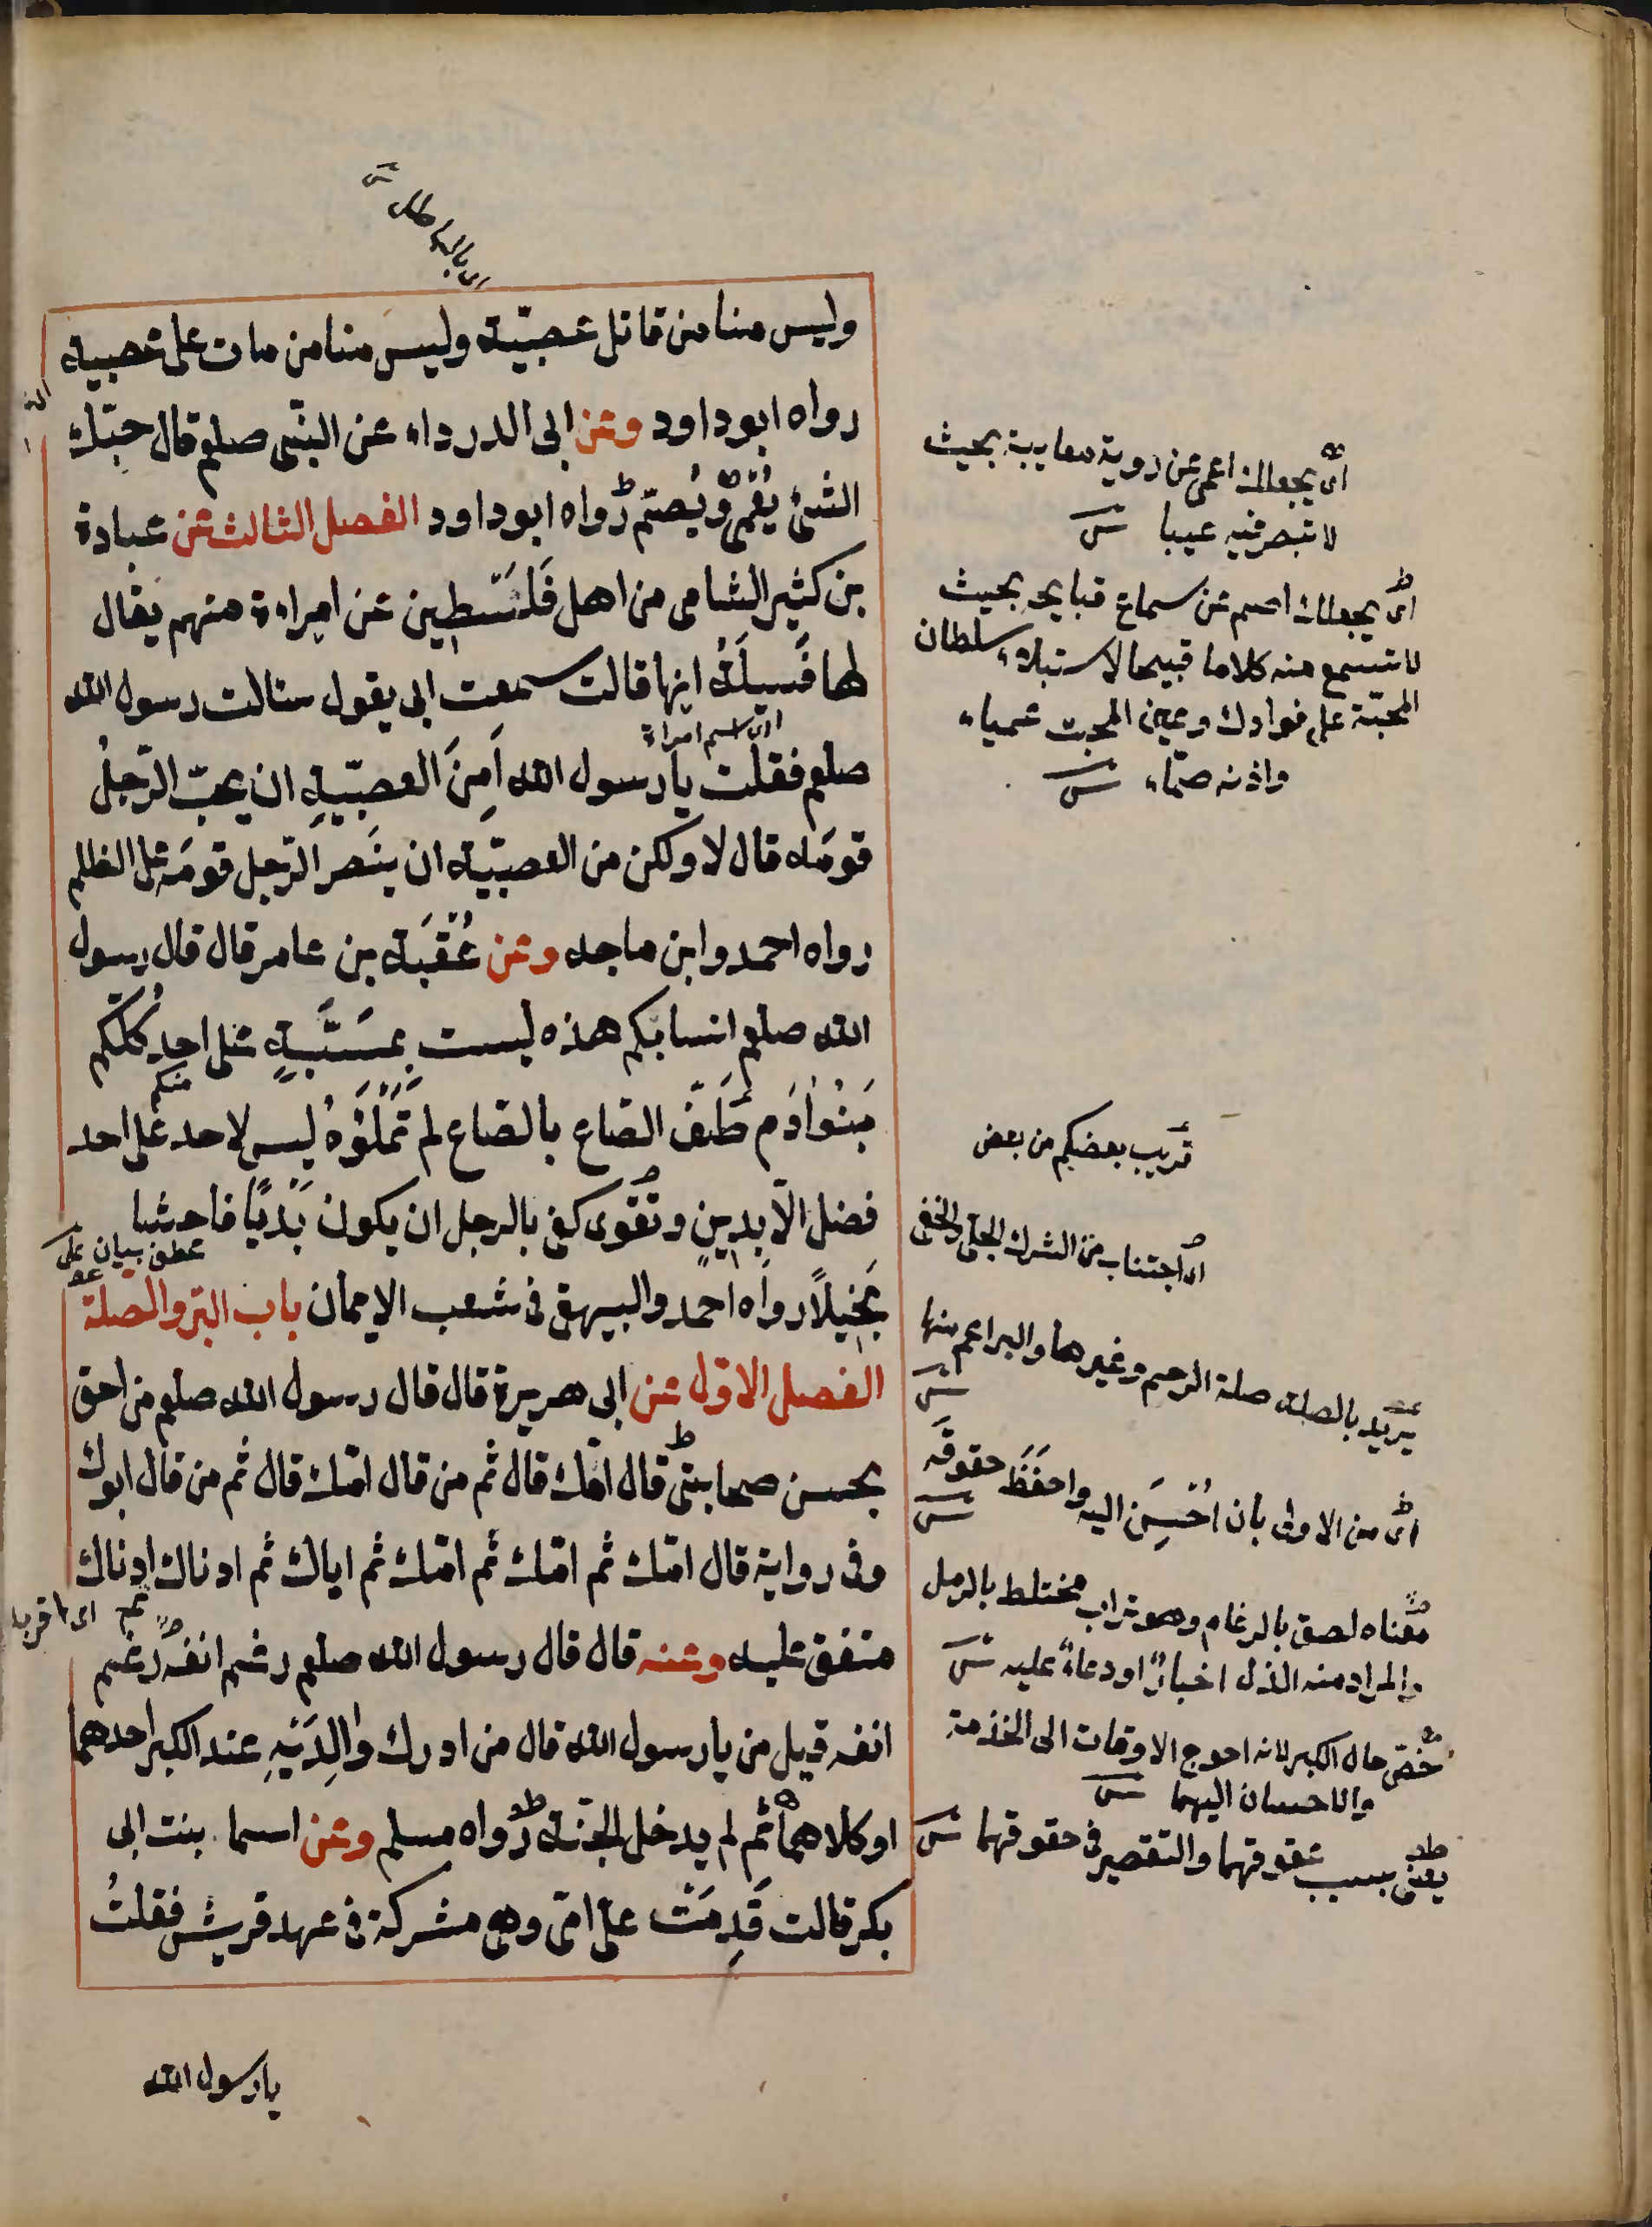 اى بالباطل ش
وليس منا من قاتل عصبيّة وليس منا من مات على عصبية
رواه ابو داود وعن ابى الدرداء عن النّبى صلعم قال حبّك
الشئ يُعْمِى ويُصمّ رواه ابو داود الفصل الثالث عن عبادة
بن كثير الشامى من اهل فَلَسْطين عن امراءة منهم يقال
لها فَسيلَةُ انها قالت سمعت ابى يقول سئالت رسول الله
اى اسم امراءة
صلعم فقلت يا رسول الله اَمِنَ العصبّيةِ ان يحبّ الرّجلُ
قومَه قال لا ولكن من العصبّية ان ينصر الرّجل قومَه على الظلم
رواه احمد وابن ماجه وعن عُقْبَة بن عامر قال قال رسول
الله صلعم انسابكم هذه ليست بمسَبَّةٍ على احدٍ كُلّكم
منكم
بَنُوا اٰدَم طَفّ الصّاع بالصّاع لم تَمْلَؤُهُ ليس لاحد على احد
فضل الّا بدينٍ وتقوى كفى بالرجل ان يكون بَذِيًّا فاحشا
عطف بيان على
بَخيلاً رواه احمد والبيهقى فى شعب الايمان باب البرّ والصلة
الفصل الاول عن ابى هريرة قال قال رسول الله صلعم من احق
بحسن صحابتى قال امّك قال ثم من قال امّك قال ثم من قال ابوك
وفى رواية قال امّك ثم امّك ثم امّك ثم اباك ثم ادناك ادناك
اى اقربك
متفق عليه وعنه قال قال رسول الله صلعم رغم انفه رَغِم
انفه قيل من يا رسول الله قال من ادرك والِدَيْهِ عند الكبر احدهما
او كلاهما ثم لم يدخل الجنّة رواه مسلم وعن اسما بنت ابى
بكر قالت قَدِمَتْ علىّ امّى وهى مشركة فى عهد قريش فقلتُ
يا رسول الله
اى يجعلك اعمى عن روية معايبه بحيث
لا تبصر فيه عيبا ش
اى يجعلك اصم عن سماع قبايحه بحيث
لا تسمع منه كلاما قبيحا لاستيلاء سلطان
المحبّة على فوادك وعين المحبّ عمياء
واذنه صمّاء ش
قريب بعضكم من بعض
اى اجتناب من الشرك الجلى والخفى
يريد بالصلة صلة الرحم وغيرها والبر اعم منها
ش
اى من الاولى بان اُحْسِنَ اليه واحفَظَ حقوقَه
ش
معناه لصق بالرغام وهو تراب مختلط بالرمل
والمراد منه الذل اخبارًا او دعاءً عليه ش
خصّ حال الكبر لانه احوج الاوقات الى الخدمة
والاحسان اليهما ش
يعنى بسبب عقوقهما والتقصير فى حقوقهما ش